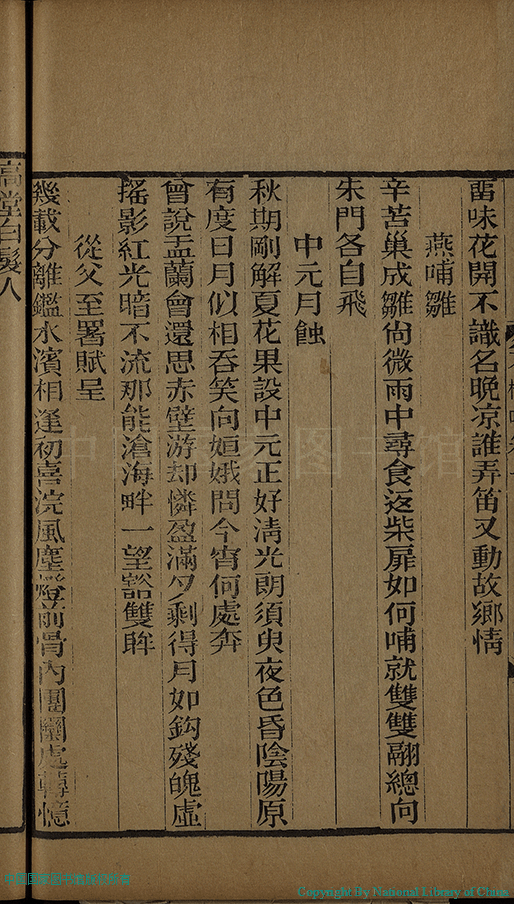 畱味花開不識名晚凉誰弄笛又動故鄉情
燕哺雛
辛苦巢成雛尙微雨中尋食返柴扉如何哺就雙雙翮總向
朱門各自飛
中元月蝕
秋期剛解夏花果設中元正好淸光朗須臾夜色昏陰陽原
有度日月似相吞笑向姮娥問今宵何處奔
曾說盂蘭會還思赤壁游却憐盈滿夕剩得月如鈎殘魄虛
搖影紅光暗不流那能滄海畔一望豁雙眸
從父至署賦呈
幾載分離鑑水濱相逢初喜浣風塵燈前骨肉團圞處轉憶
高堂白髮人
中国国家图书馆
Copyright By National Library of China